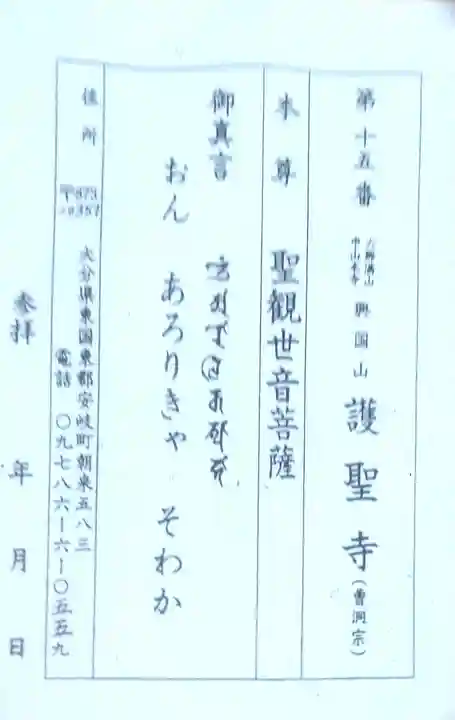 第十五番
興国山 護聖寺（曹洞宗）
本尊 聖観世音菩薩
御真言
おん あろりきゃ そわか
住所 〒873
0357
大分県東国東郡安岐町朝来五八三
電話 〇九七八六ー六ー〇五五九
参拝 年 月 日